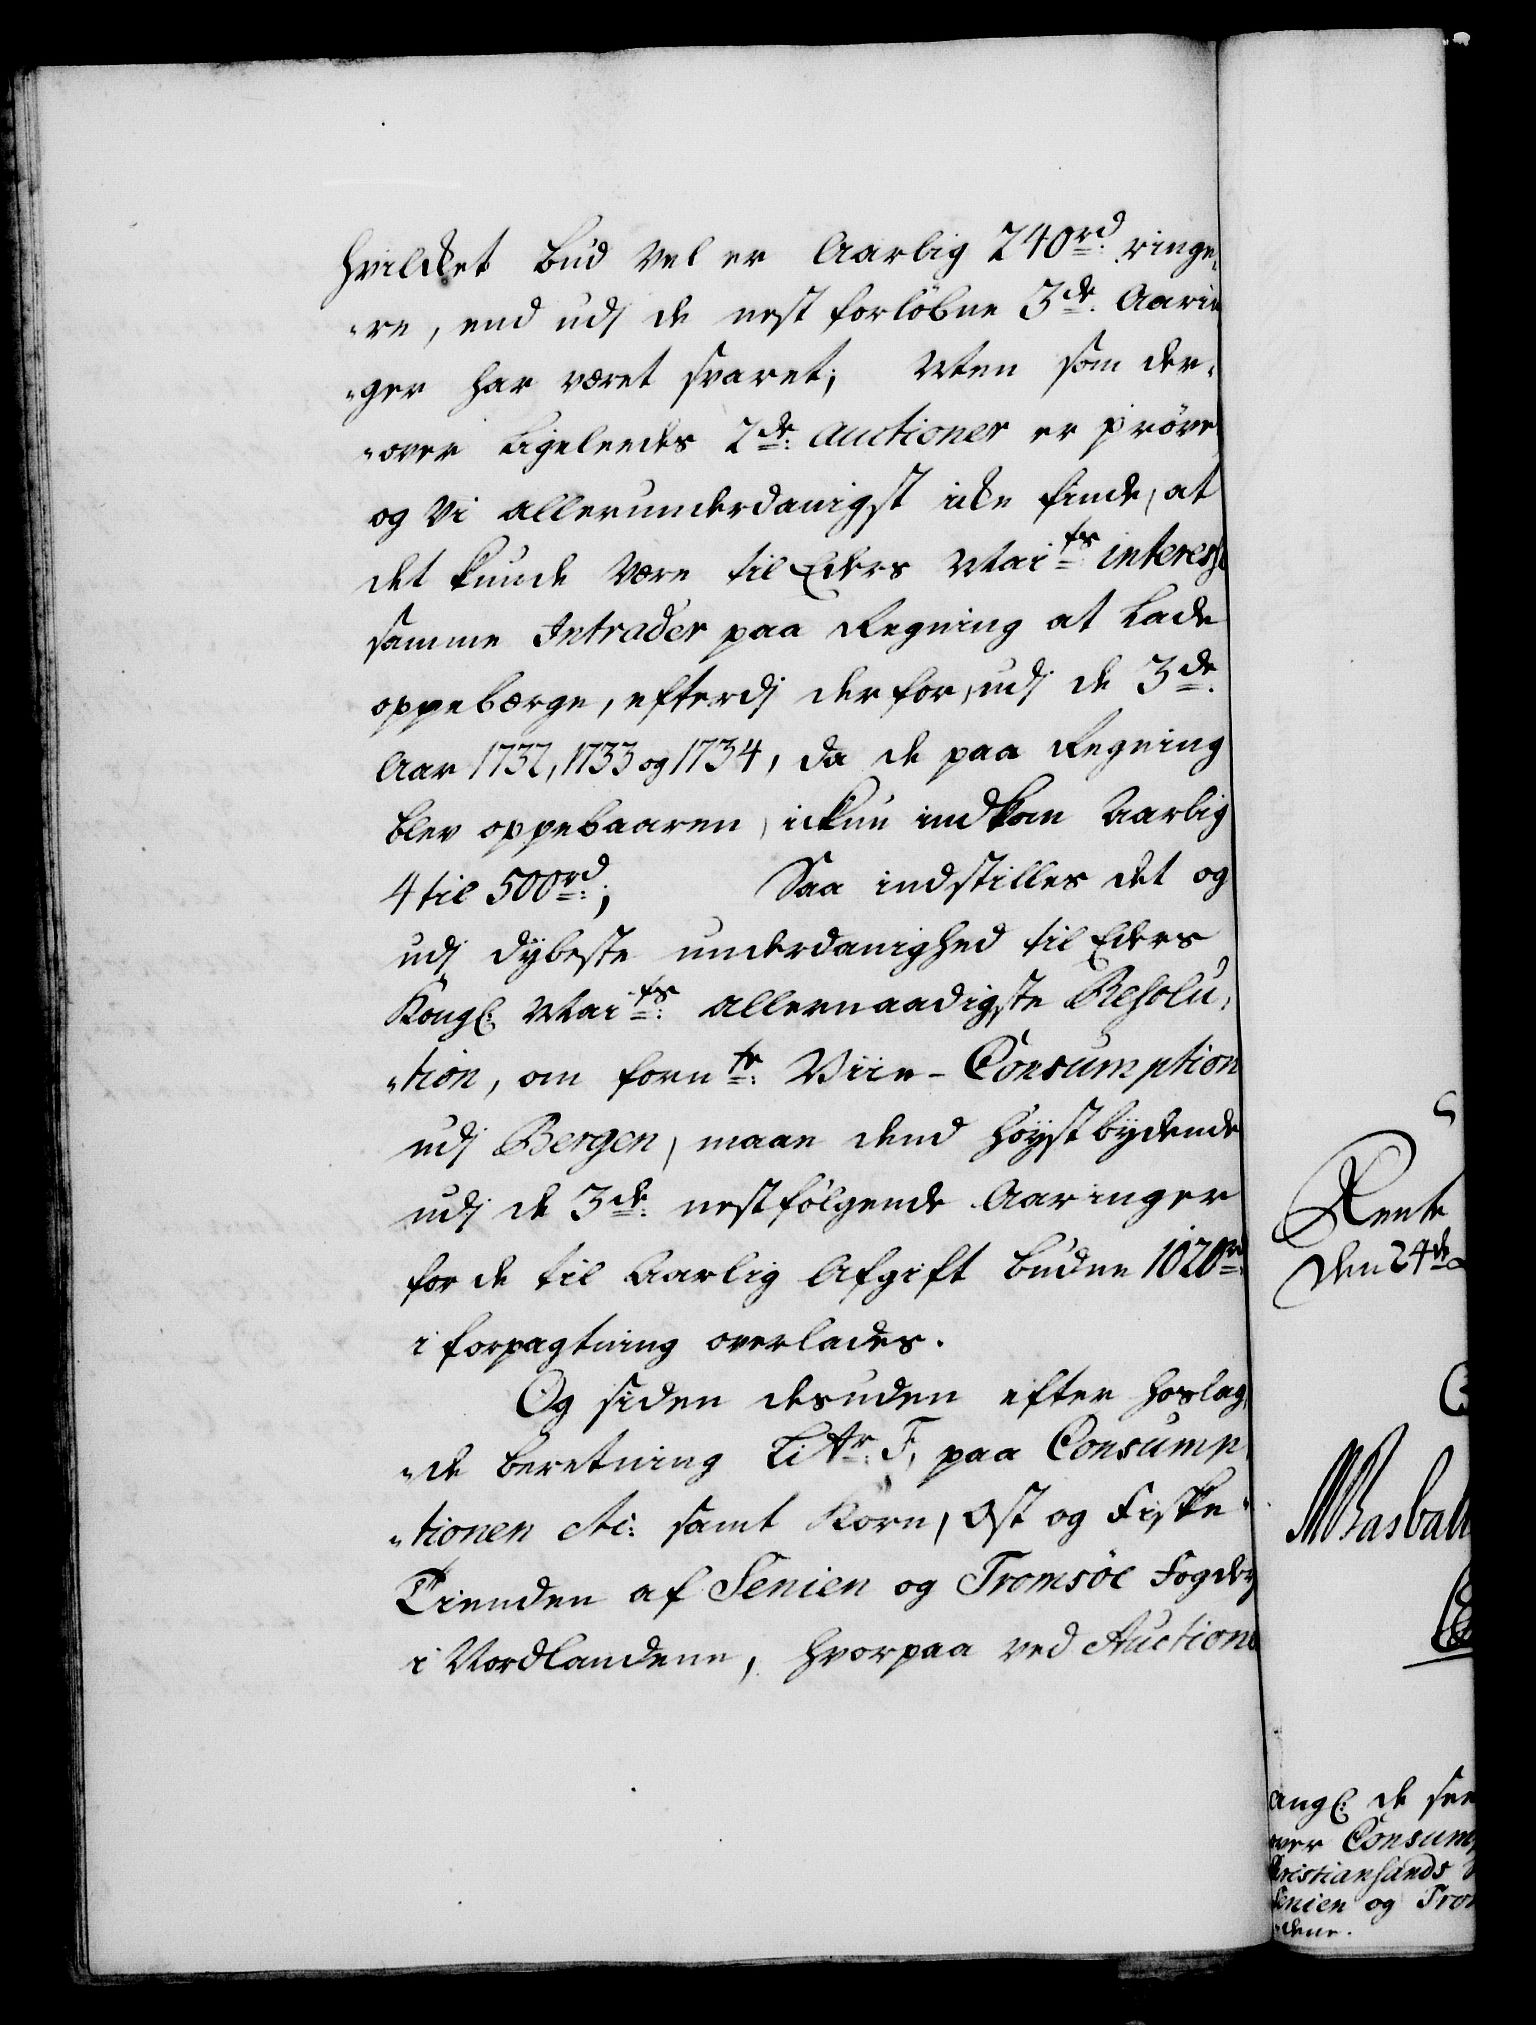 hvilcket bud vel er Aarlig 240 rd: ringe,
"re, end udj de nest forløbne 3de: Aarin
"ger har været svaret; Men som der,
"over ligeleedes 2de: auctioner er prøve
og Vi allerunderdanigst icke finde, at
det kunde være til Eders Maits: interesse
samme Intrader paa Regning at lade
oppebærge, efterdj derfor, udj de 3de:
Aar 1732, 1733 og 1734, da de paa Regning
blev oppebaaren, ickun indkom Aarlig
4 til 500 rd:; Saa indstilles det og
udj dybeste underdanighed til Eders
Kongl: Maits: allernaadigste Resolu,
"tion, om fornte: Viin-Consumption
udj Bergen, maae dend høystbydende
udj de 3de: nestfølgende Aaringer
for de til Aarlig Afgift budne 1020 rd:
i forpagtning overlades.
Og siden desuden efter hoslag,
"de beretning Litr: F, paa Consump,
"tionen etc: samt Korn, Ost og Fiske-
Tienden af Senien og Tromsøe Fogderj
i Nordlandene, hvorpaa ved Auctione
Rente
den 24de
angl: de
over Consum
Christiansands
Senien og Tro
"dene.